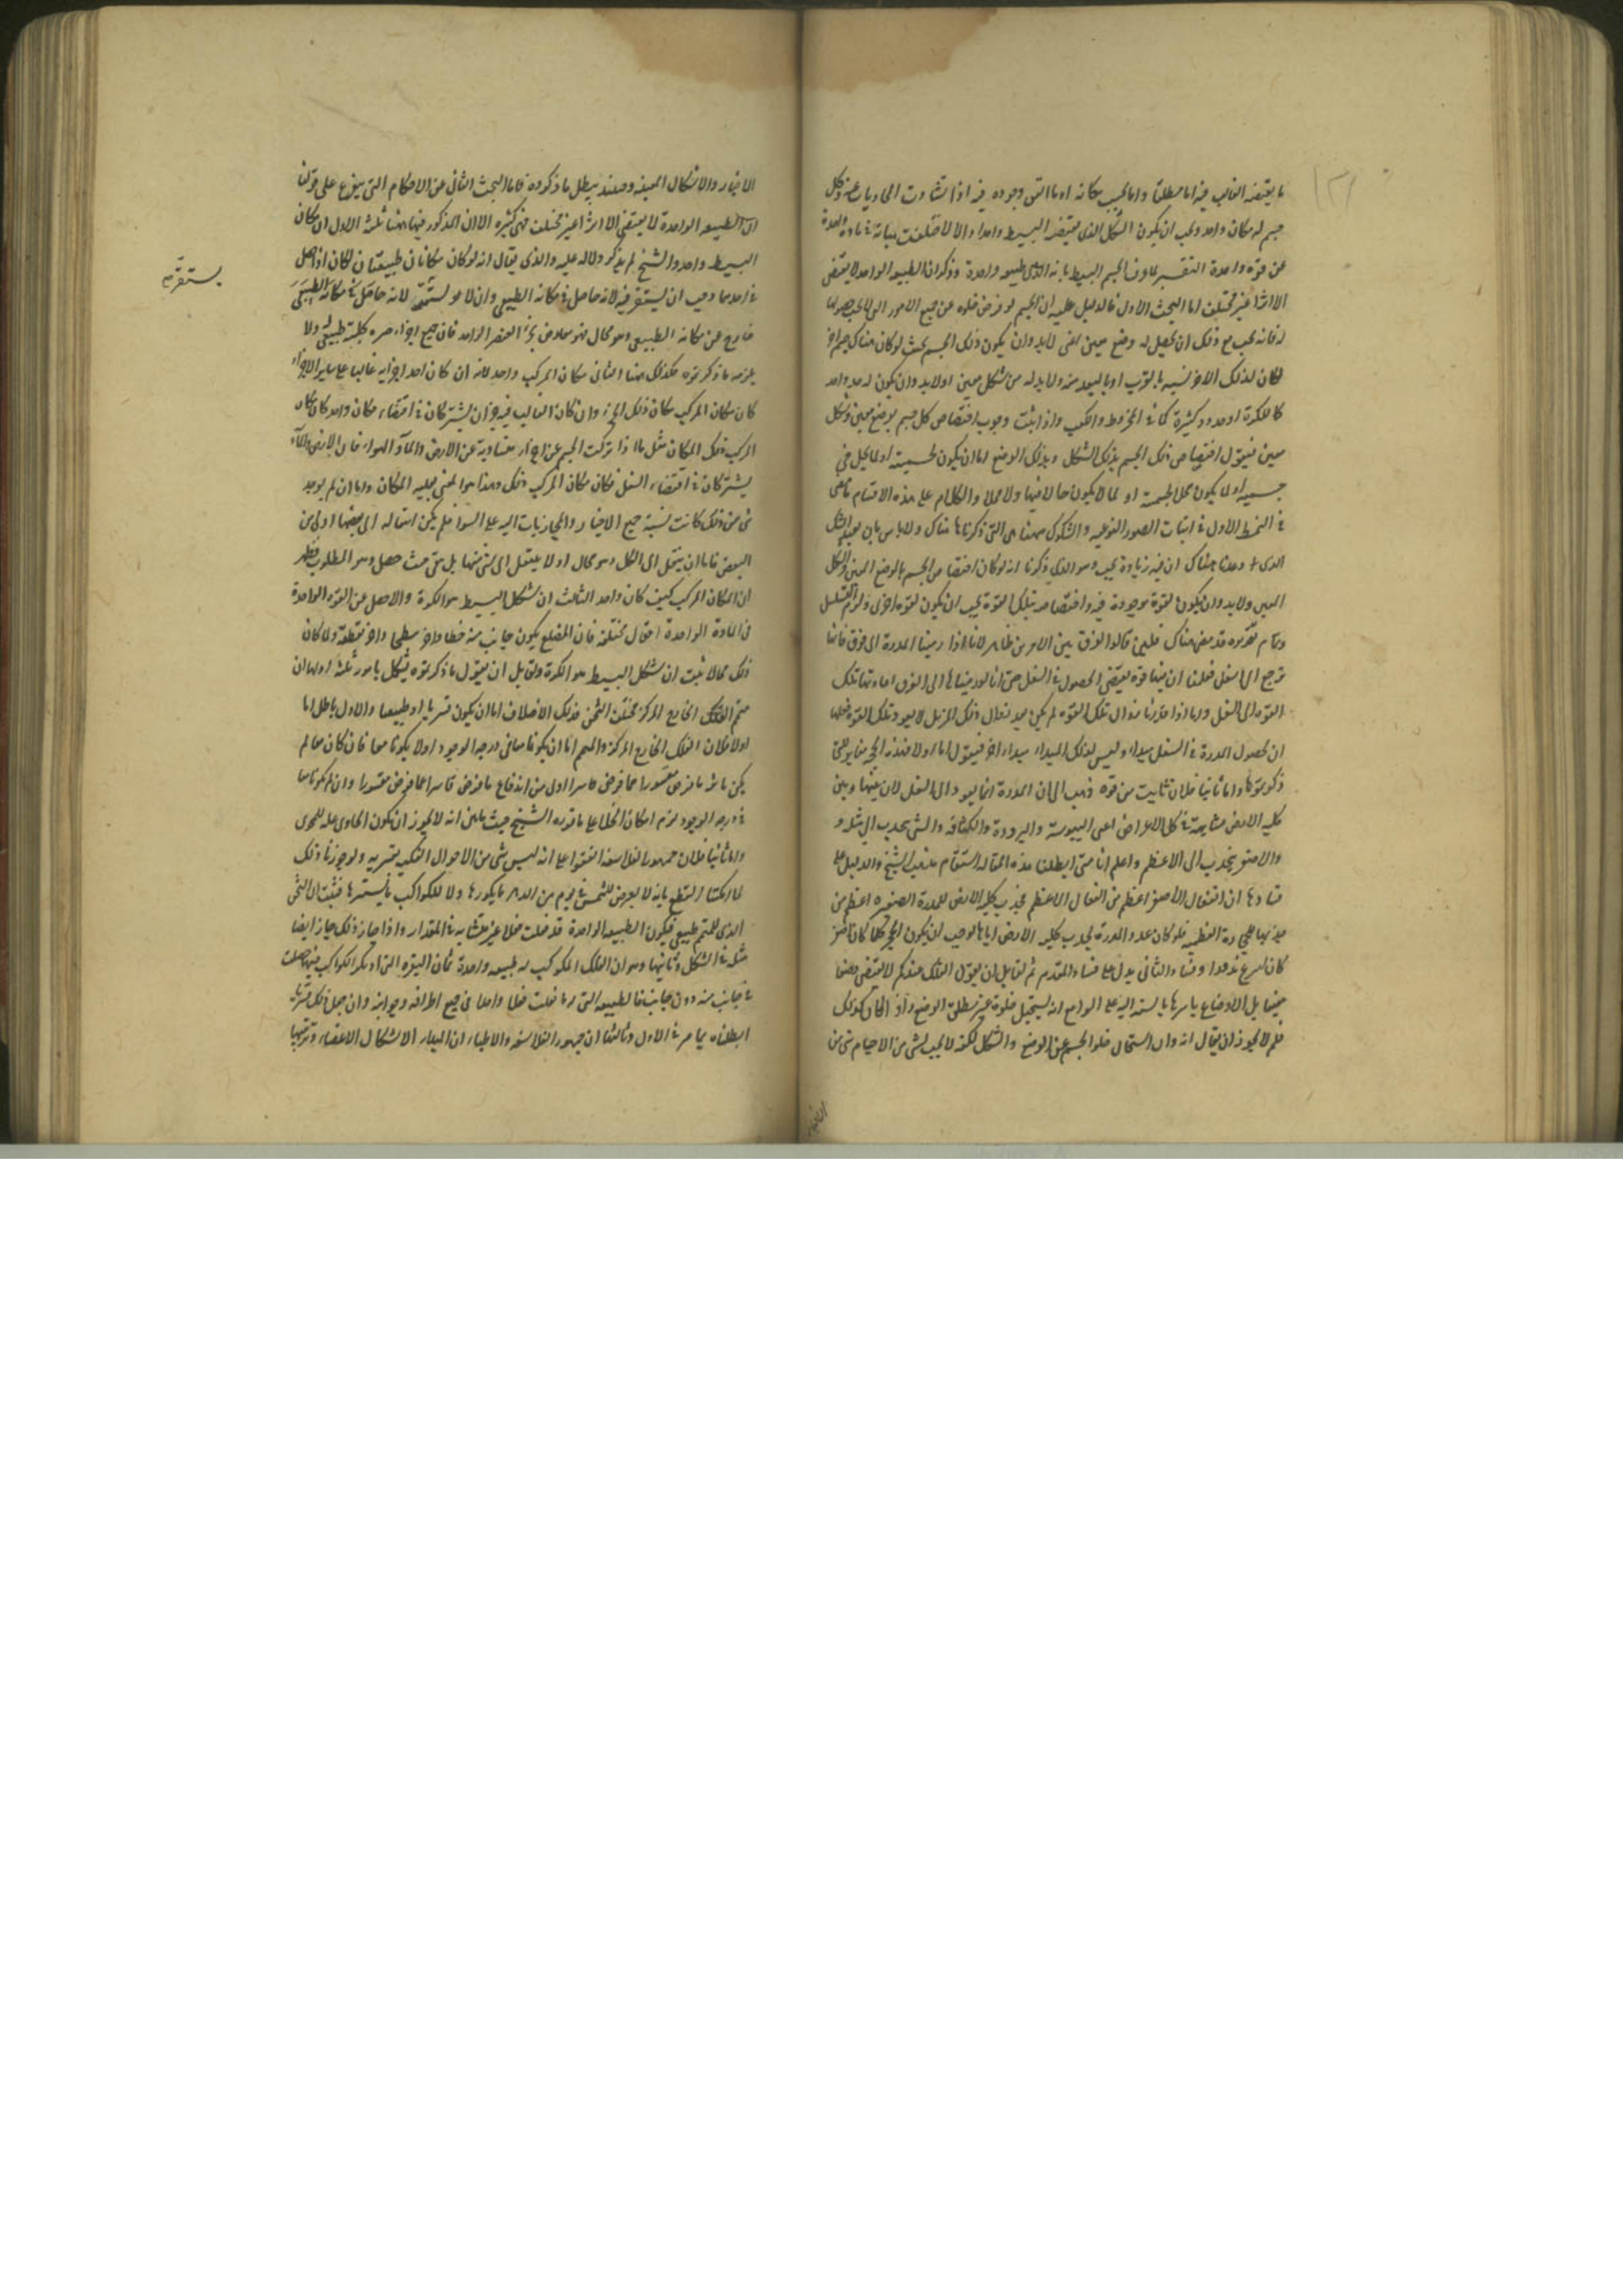 ما يقتضيه الغالب فيه اما مطلقا واما بحسب مكانه او ما اتفق وجوده فيه اذا تساوت المجاذبات عنه وكل
جسم له مكان واحد ويجب ان يكون الشكل الذي يقتضيه البسيط واحدا والا لاختلفت هيآته في مادة واحدة
عن قوة واحدة التفسير لما عرف الجسم البسيط بانه الذي له طبيعة واحدة وذكر ان الطبيعة الواحدة لا يقتضي
الا اثرا غير مختلف اما البحث الاول فالدليل عليه ان الجسم لو فرض خلوه عن جميع الامور التي لا يجب حصولها
له فانه يجب مع ذلك ان يحصل له وضع معين اعني لا بد وان يكون ذلك الجسم بحيث لو كان هناك جسم اخر
لكان لذلك الاخر نسبة بالقرب او بالبعد منه ولا بد له من شكل معين اذ لا بد وان يكون له حد واحد
كما للكرة او حدود كثيرة كما في المخروط والمكعب واذا ثبت وجوب اختصاص كل جسم بوضع معين وشكل
معين فنقول اختصاص ذلك الجسم بذلك الشكل وبذلك الوضع اما ان يكون لجسميته او لما يحل في
جسميته او لما يكون محلا لجسميته او لما لا يكون حالا فيها ولا محلا والكلام على هذه الاقسام ما مضى
في النمط الاول في اثبات الصور النوعية والشكوك ههنا هي التي ذكرناها هناك ولا باس بان نعيد الشك
الذي وعدنا هناك ان فيه زيادة بحث وهو الذي ذكرنا انه لو كان اختصاص الجسم بالوضع المعين والشكل
المعين ولا بد وان يكون لقوة موجودة فيه واختصاصه بتلك القوة يجب ان يكون لقوة اخرى ولزم التسلسل
وتمام تقريره قد مضى هناك فلئن قالوا الفرق بين الامرين ظاهر لانا اذا رمينا المدرة الى فوق فانها
ترجع الى اسفل فعلمنا ان فيها قوة يقتضي الحصول في السفل حتى انا لو رميناها الى الفوق اعادتها تلك
القوة الى السفل واما اذا قدرنا زوال تلك القوة لم يكن بعد زوال ذلك المزيل لا يعود تلك القوة فعلمنا
ان لحصول المدرة في السفل مبدا وليس لذلك المبدا مبدا اخر فنقول اما اولا فهذه الحجة منا يرى التي
ذكرتموها واما ثانيا فلان ثابت بن قرة ذهب الى ان المدرة انما يعود الى السفل لان بينها وبين
كلية الارض مشابهة في كل الاعراض اعني اليبوسة والبرودة والكثافة والشيء ينجذب الى مثله و
والاصغر ينجذب الى الاعظم واعلم انا متى ابطلنا هذه المقالة استقام مذهب الشيخ والدليل على
فسادها ان انفعال الاصغر اعظم من انفعال الاعظم فجذب كلية الارض للمدرة الصغيرة اعظم من
جذبها للمدرة العظيمة فلو كان عود المدرة لجذب كلية الارض اياها لوجب ان يكون الحجر كلما كان اصغر
كان اسرع نزولا وفساد التالي يدل على فساد المقدم ثم لقايل ان يقول الفلك عندكم لا يقتضي وضعا
معينا بل الاوضاع باسرها بالنسبة اليه على السواء مع انه يستحيل خلوه عن مطلق الوضع واذا كان كذلك
فلم لا يجوز ان يقال انه وان استحال خلو الجسم عن الوضع والشكل لكنه لا يجب لشيء من الاجسام شيء من
الاحياز
الاحياز والاشكال المعينة وحينئذ يبطل ما ذكروه فاما البحث الثاني عن الاحكام التي يتفرع على قولنا
ان الطبيعة الواحدة لا يقتضي الا اثرا غير مختلف فهي كثيرة الا ان المذكور فيها ههنا ثلثة الاول ان مكان
البسيط واحد والشيخ لم يذكر دلالة عليه والذي يقال انه لو كان مكانان طبيعيان لكان اذا حصل
في احدهما وجب ان يستقر فيه لانه حاصل في مكانه الطبيعي وان لا يستقر لانه حاصل في مكانه الطبيعي
يستقر فيه
خارج عن مكانه الطبيعي وهو محال فهو معارض بجزء العنصر الواحد فان جميع اجزاء حيزه كلية طبيعي له ولا
يلزمه ما ذكرتموه فكذلك ههنا الثاني مكان المركب واحد لانه ان كان احد اجزايه غالبا على ساير الاجزاء
كان مكان المركب مكان ذلك الجزء وان كان الغالب فيه جزآن يشتركان في اقتضاء مكان واحد كان مكان
المركب ذلك المكان مثل ما اذا تركب الجسم عن اجزاء متساوية عن الارض والماء والهواء فان الارض والماء
يشتركان في اقتضاء السفل فكان مكان المركب ذلك وهذا هو المعنى بغلبة المكان واما ان لم يوجد
شيء من ذلك كانت نسبة جميع الاحياز والمجاذبات اليه على السواء فلم يكن انتقاله الى بعضها اولى من
البعض فاما ان ينتقل الى الكل وهو محال او لا ينتقل الى شيء منها بل يبقى حيث حصل وهو المطلوب فظهر
ان المكان المركب كيف كان واحد الثالث ان شكل البسيط هو الكرة والا حصل عن القوة الواحدة
في المادة الواحدة افعال مختلفة فان المضلع يكون جانب منه خطا واخر سطحا واخر نقطة ولما كان
ذلك محالا ثبت ان شكل البسيط هو الكرة ولقايل ان يقول ما ذكرتموه يشكل بامور ثلثة اولها ان
متمم الفلك الخارج المركز مختلف الثخن فذلك الاختلاف اما ان يكون قسريا او طبيعيا والاول باطل اما
اولا فلان الفلك الخارج المركز والمتمم اما ان يكونا معا في درجة الوجود او لا يكونا معا فان كان معا لم
يكن ما فرض مقسورا مما فرض قاسرا اولى من اندفاع ما فرض قاسرا عما فرض مقسورا وان لم يكونا معا
في درجة الوجود لزم امكان الخلا على ما قرره الشيخ حيث بين انه لا يجوز ان يكون الحاوي علة للمحوي
واما ثانيا فلان جمهور الفلاسفة اتفقوا على انه ليس شيء من الاحوال الفلكية بقسرية ولو جوزنا ذلك
لما امكننا القطع بانه لا يعرض للشمس في يوم من الدهر ما يكورها ولا للكواكب ما يستمرها فثبت ان الثخن
الذي للمتمم طبيعي فيكون الطبيعة الواحدة قد فعلت فعلا غير متشابه في المقدار واذا جاز ذلك جاز ايضا
مثله في الشكل وثانيها وهو ان الفلك المكوكب له طبيعة واحدة ثم ان النقرة التي تركز الكواكب فيها حصلت
في جانب منه دون جانب فالطبيعة التي لها فعلت فعلا واحدا في جميع اطرافه وجوانبه وان جعل ذلك قسريا
ابطلناه بما مر في الاول وثالثها ان جمهور الفلاسفة والاطباء ان المبدا لاشكال الاعضاء وترتيبها